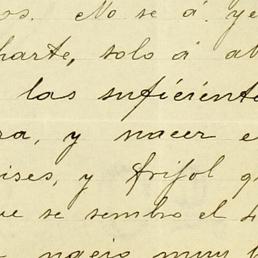 os. No se á ye
harte, solo á ab
las suficiente
ra, y nacer e
ises, y frisol q
ue se sembro el 4
nacio muy b